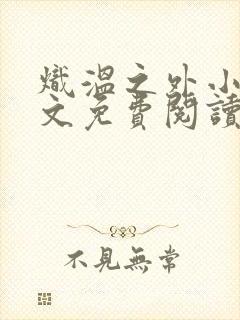 熾溫之外小
文免費閱讀
不見無常